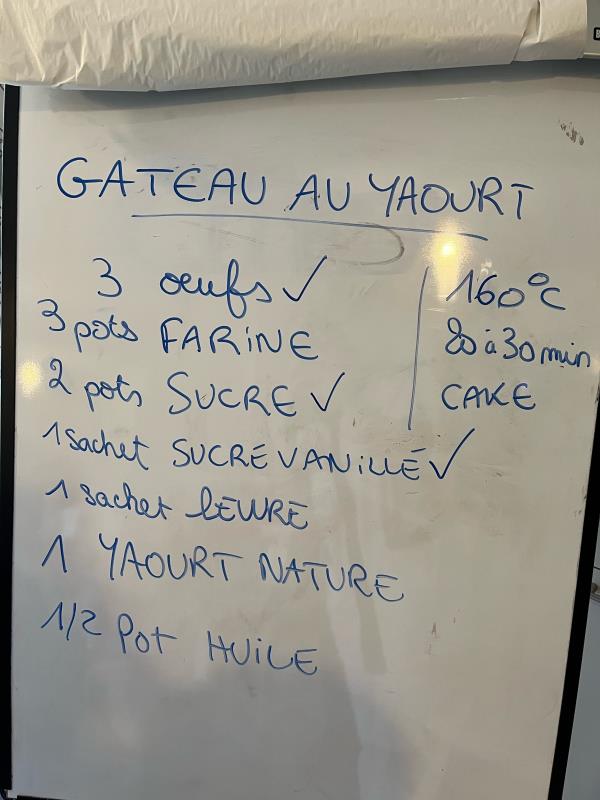 GATEAU AU YAOURT
3 oeufs ✓
3 pots FARINE
2 pots SUCRE ✓
1 sachet SUCRE VANILLÉ ✓
1 sachet LEVURE
1 YAOURT NATURE
1/2 Pot HUILE
160°C
20 à 30 min
CAKE